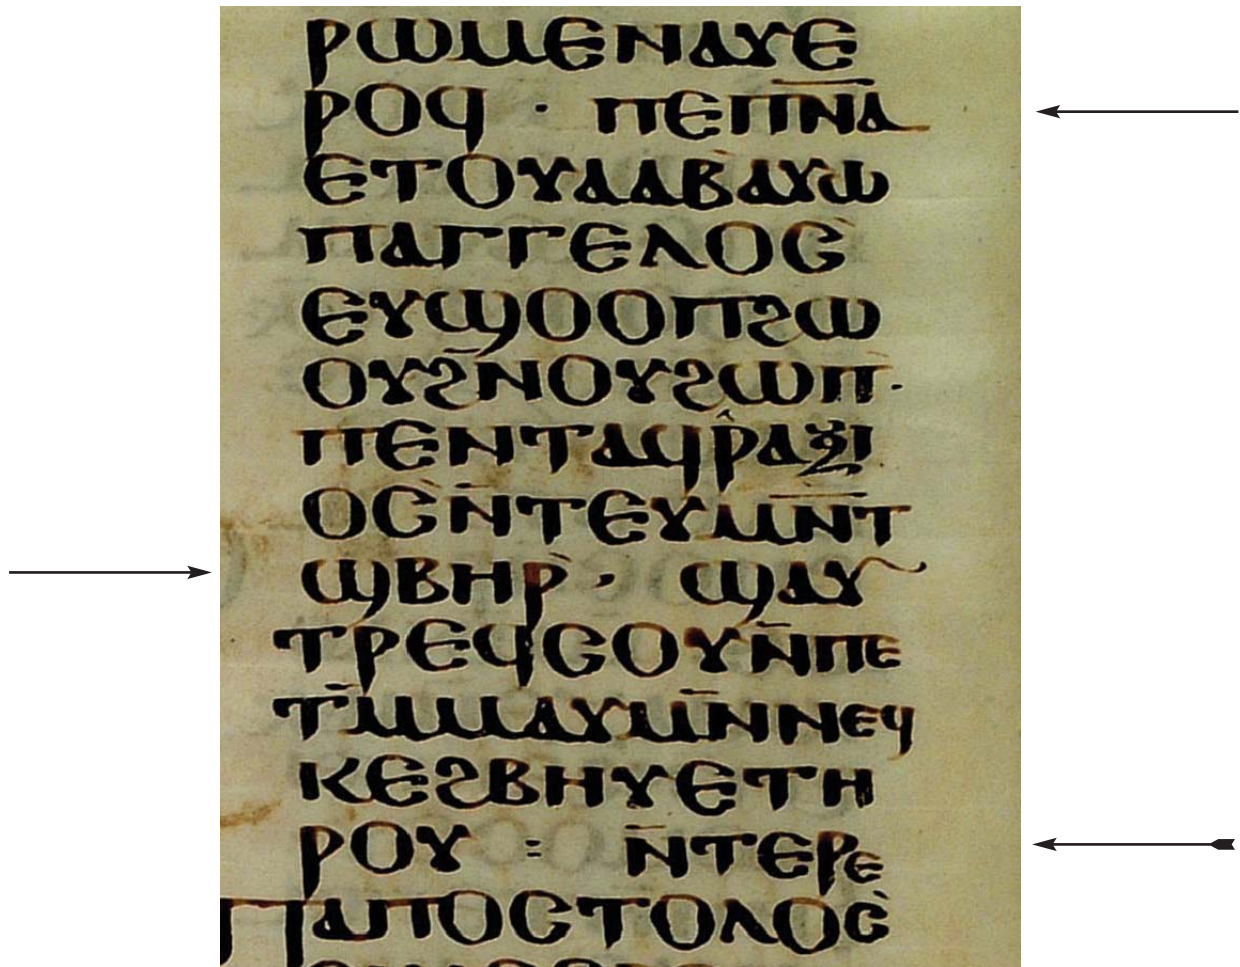 ⲣⲱⲙⲉⲛⲁⲩⲉ
ⲣⲟϥ · ⲡⲉⲡⲛ̅ⲁ̅
ⲉⲧⲟⲩⲁⲁⲃⲁⲩⲱ
ⲡⲁⲅⲅⲉⲗⲟⲥ̀
ⲉⲩϣⲟⲟⲡϩⲱ
ⲟⲩϩⲛ̅ⲟⲩϩⲱⲡ̀·
ⲡⲉⲛⲧⲁϥⲣ̂ⲁⲝⲓ
ⲟⲥ̀ⲛ̅ⲧⲉⲩⲙⲛ̅ⲧ
ϣⲃⲏⲣ̀ · ϣⲁⲩ
ⲧⲣⲉϥⲥⲟⲩⲛ̅ⲡⲉ
ⲧⲙ̅ⲙⲁⲩⲙⲛ̅ⲛⲉϥ
ⲕⲉϩⲃⲏⲩⲉⲧⲏ
ⲣⲟⲩ = ⲛ̅ⲧⲉⲣⲉ
ⲡⲁⲡⲟⲥⲧⲟⲗⲟⲥ̀